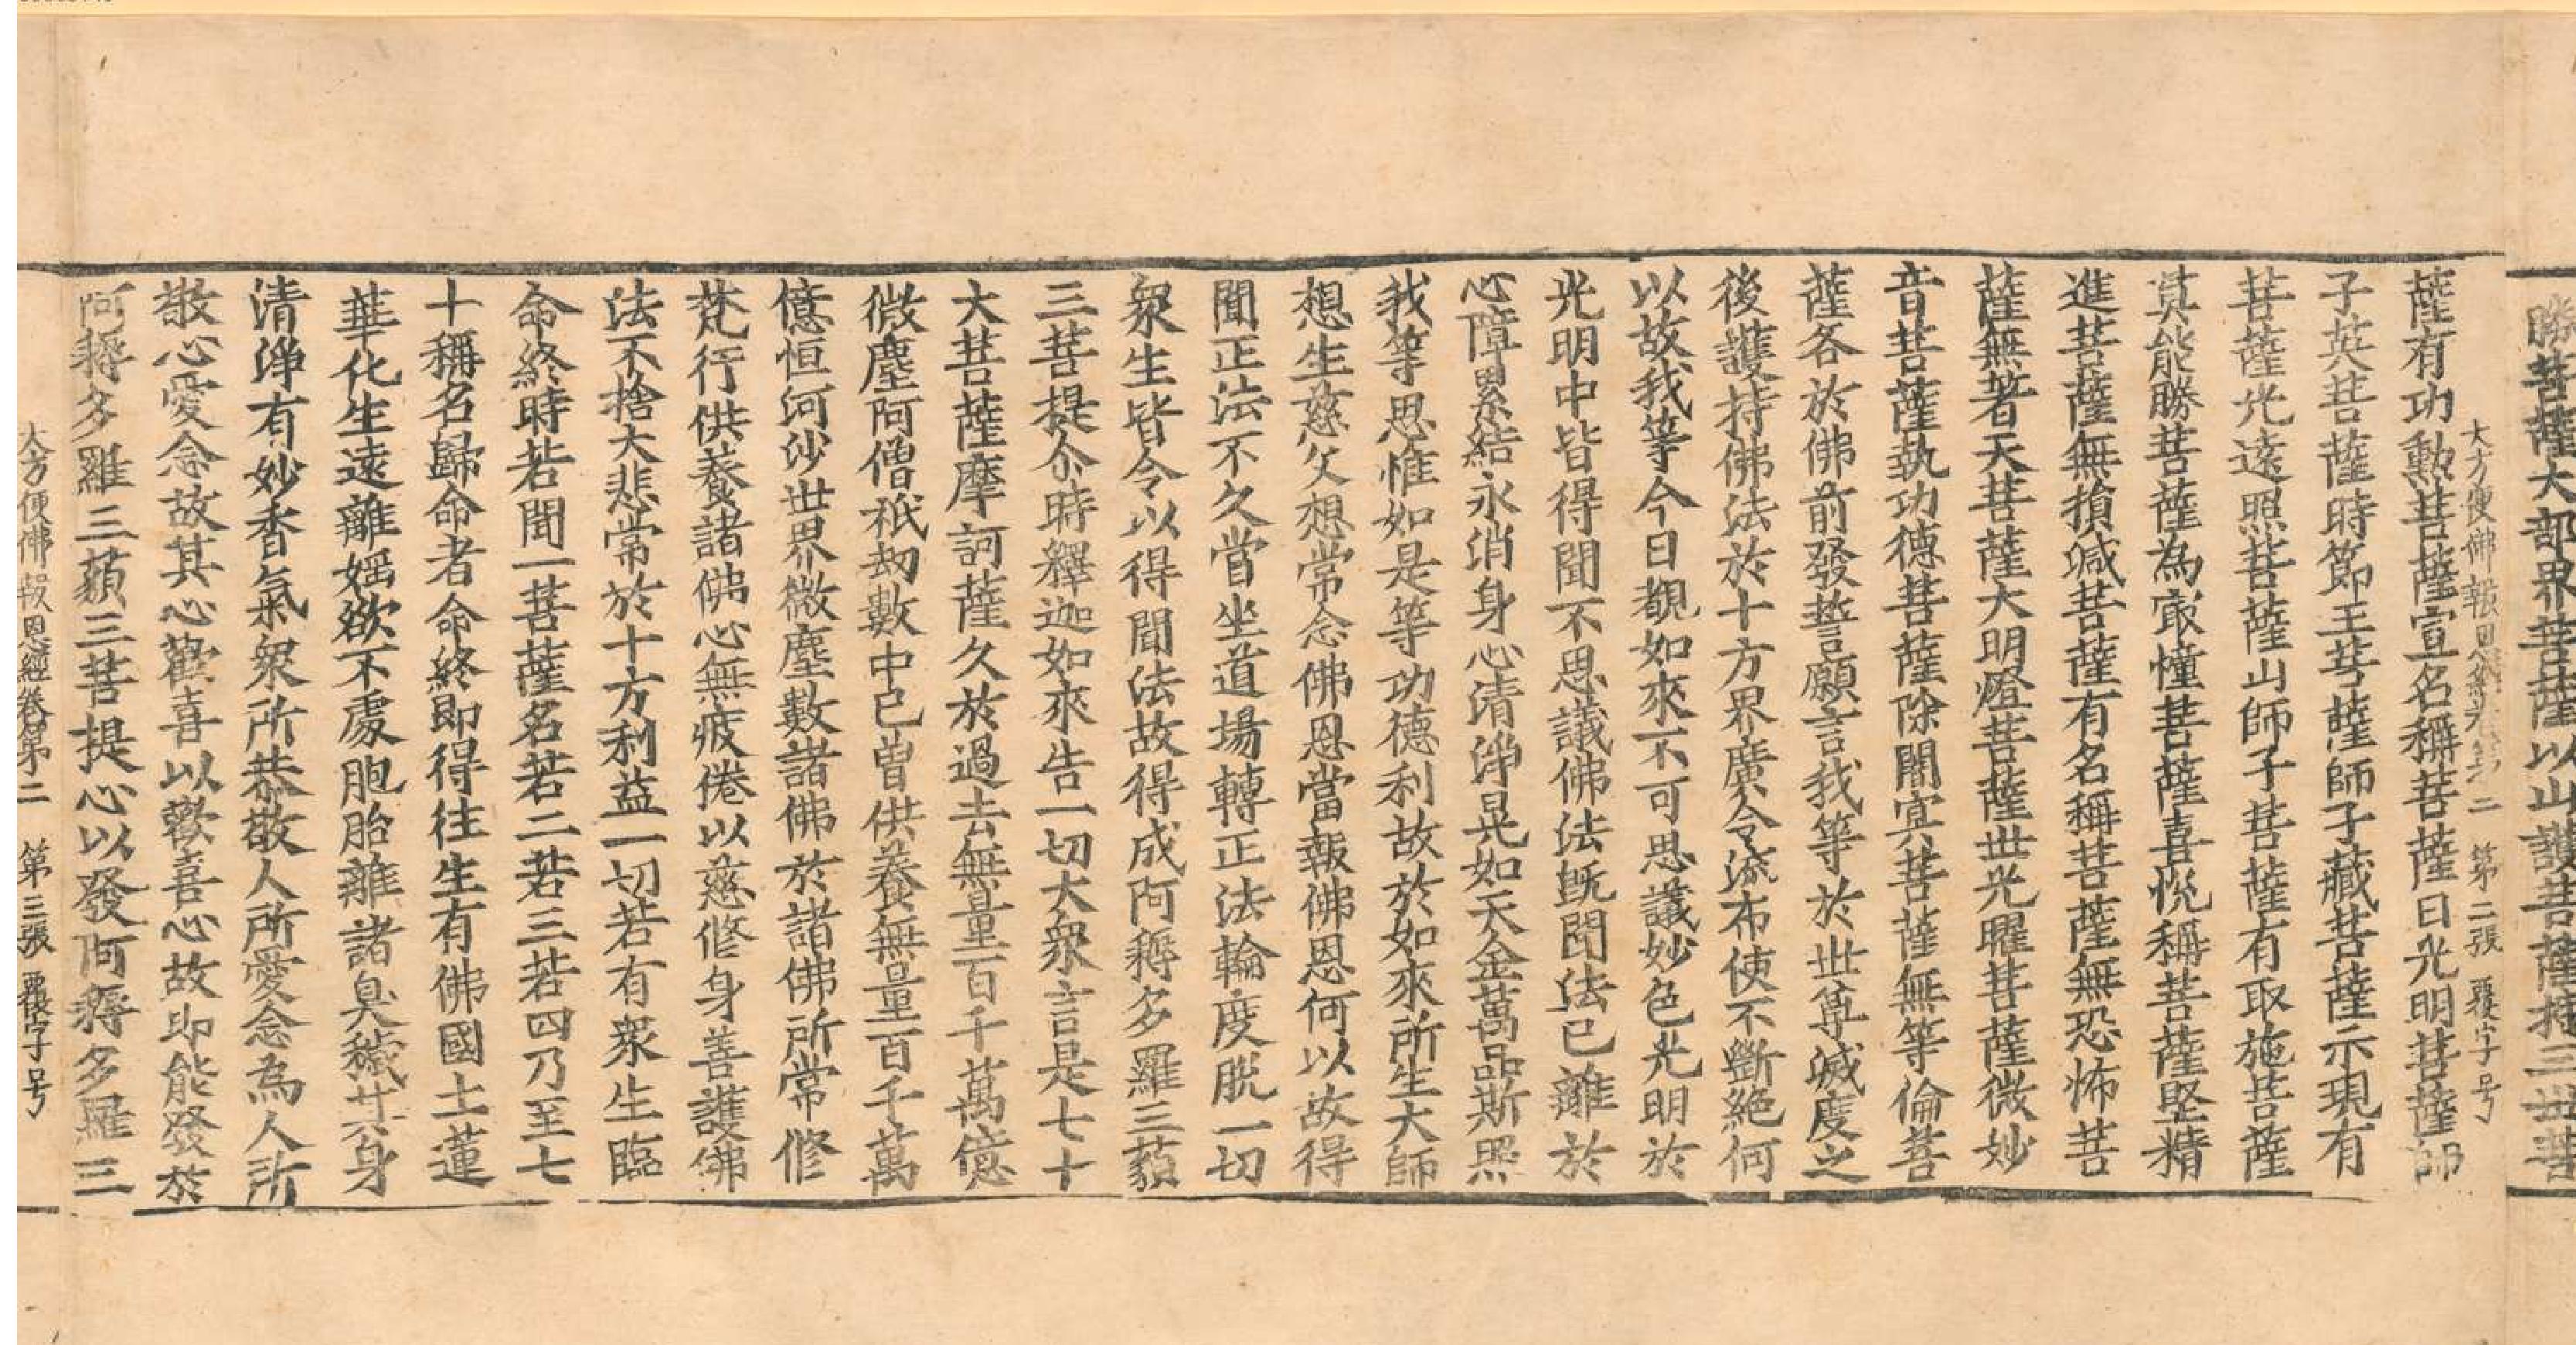 勝菩薩大部界菩薩以山護菩薩持三世菩
大方便佛報恩經卷第二　第二張　覆字号
薩有功勳菩薩宣名稱菩薩日光明菩薩師
子英菩薩時節王菩薩師子藏菩薩示現有
菩薩光遠照菩薩山師子菩薩有取施菩薩
莫能勝菩薩為㝡幢菩薩喜悅稱菩薩堅精
進菩薩無損減菩薩有名稱菩薩無恐怖菩
薩無著天菩薩大明燈菩薩世光曜菩薩微妙
音菩薩執功德菩薩除闇冥菩薩無等倫菩
薩各於佛前發誓願言我等於世尊滅度之
後護持佛法於十方界廣令流布使不斷絕何
以故我等今日覩如來不可思議妙色光明於
光明中皆得聞不思議佛法既聞法已離於
心障累結永消身心清淨晃如天金萬品斯照
我等思惟如是等功德利故於如來所生大師
想生慈父想常念佛恩當報佛恩何以故得
聞正法不久當坐道場轉正法輪度脫一切
衆生皆令以得聞法故得成阿耨多羅三藐
三菩提尒時釋迦如來告一切大衆言是七十
大菩薩摩訶薩久於過去無量百千萬億
微塵阿僧祇劫數中已曾供養無量百千萬
億恒河沙世界微塵數諸佛於諸佛所常修
梵行供養諸佛心無疲倦以慈修身善護佛
法不捨大悲常於十方利益一切若有衆生臨
命終時若聞一菩薩名若二若三若四乃至七
十稱名歸命者命終即得往生有佛國土蓮
華化生遠離婬欲不處胞胎離諸臭穢其身
清淨有妙香氣衆所恭敬人所愛念為人所
敬心愛念故其心歡喜以歡喜心故即能發於
阿耨多羅三藐三菩提心以發阿耨多羅三
大方便佛報恩經卷第二　第三張　覆字号